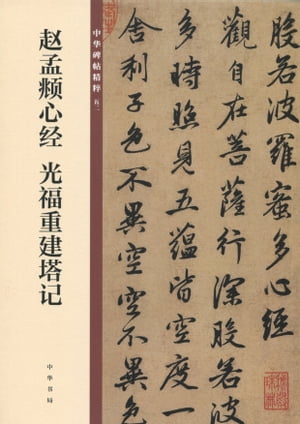 赵孟頫心经 光福重建塔记
中华碑帖精粹
中华书局
般若波羅蜜多心經
觀自在菩薩行深般若波
多時照見五蕴皆空度一
舍利子色不異空空不異